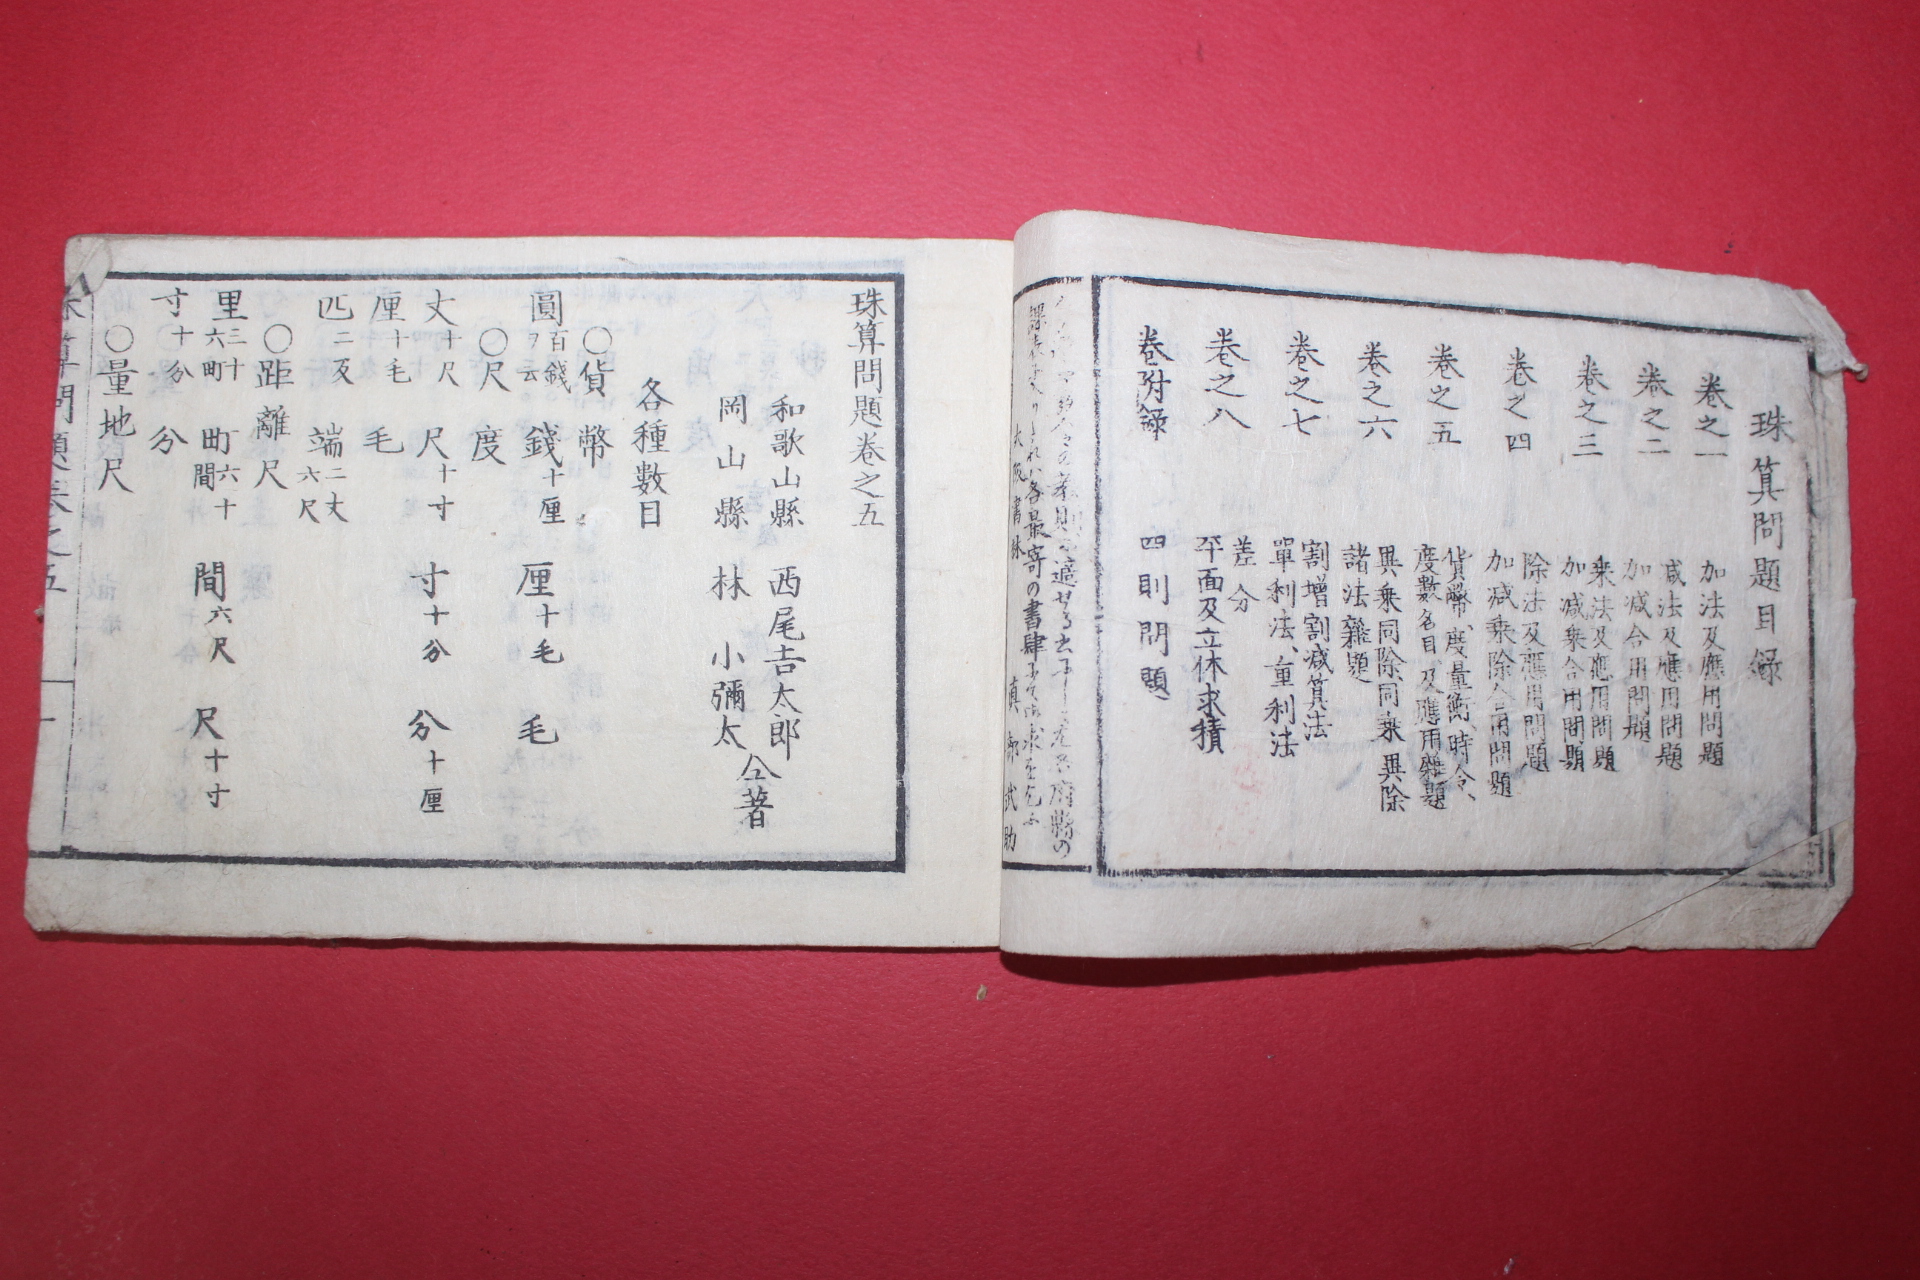 珠算問題目録
巻之一 加法及應用問題
巻之二 減法及應用問題
加減合用問題
巻之三 乗法及應用問題
加減乗合用問題
巻之四 除法及應用問題
加減乗除合用問題
巻之五 貨幣、度量衡、時令、
度數名目及應用雜題
巻之六 異乗同除同乗異除
諸法雜題
巻之七 割増割減算法
單利法、重利法
巻之八 差分
平面及立体求積
巻附録 四則問題
各最寄の書肆
大阪書林 真部武助
珠算問題巻之五
和歌山縣 西尾吉太郎
岡山縣 林小彌太 仝著
各種數目
〇貨幣
圓百錢 錢十厘 厘十毛 毛
〇尺度
丈十尺 尺十寸 寸十分 分十厘
厘十毛 毛
匹二反 端二丈六尺
〇距離尺
里三十六町 町六十間 間六尺 尺十寸
寸十分 分
〇量地尺
珠算問題巻之五 一